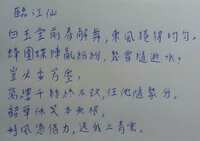 臨江仙
白玉堂前春解舞，東風捲得均勻。
蜂圍蝶陣亂紛紛。幾曾隨逝水，
豈必委芳塵。
萬縷千絲終不改，任他隨聚分。
韶華休笑本無根。
好風憑借力，送我上青雲。